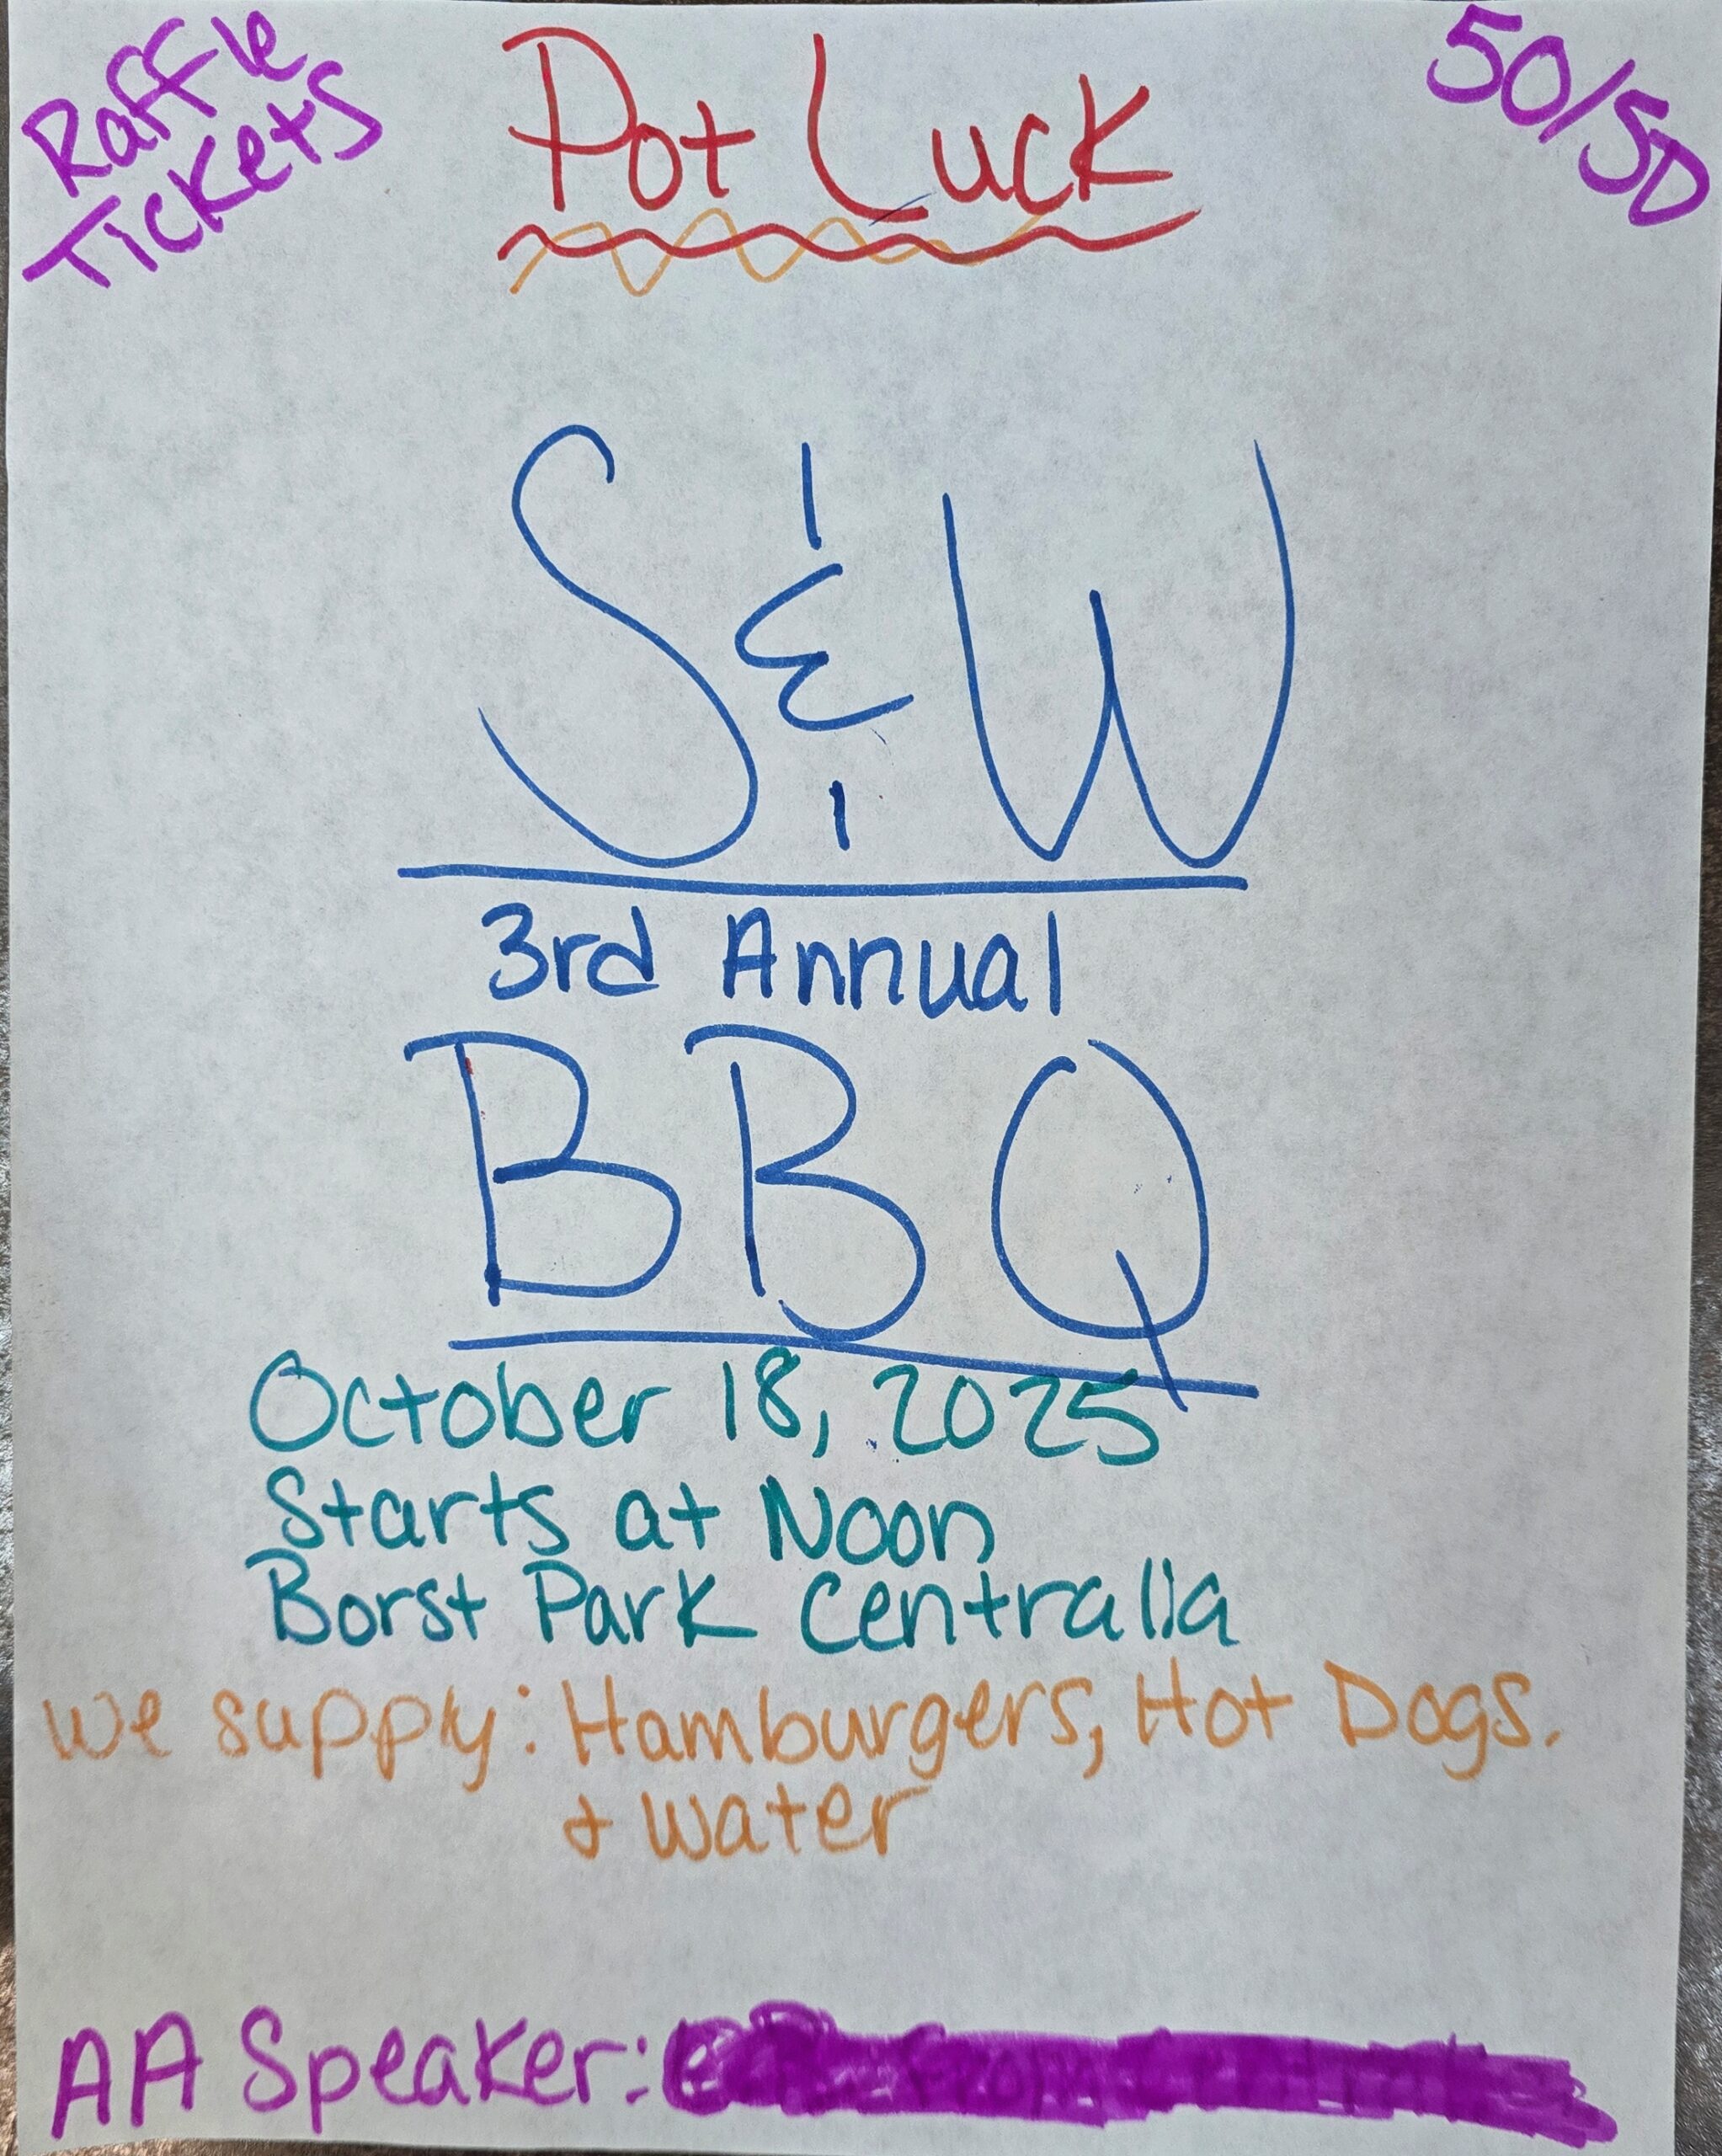 Raffle
Tickets
Pot Luck
50/50
S & W
3rd Annual
BBQ
October 18, 2025
Starts at Noon
Borst Park Centralia
We supply: Hamburgers, Hot Dogs.
+ water
AA Speaker: